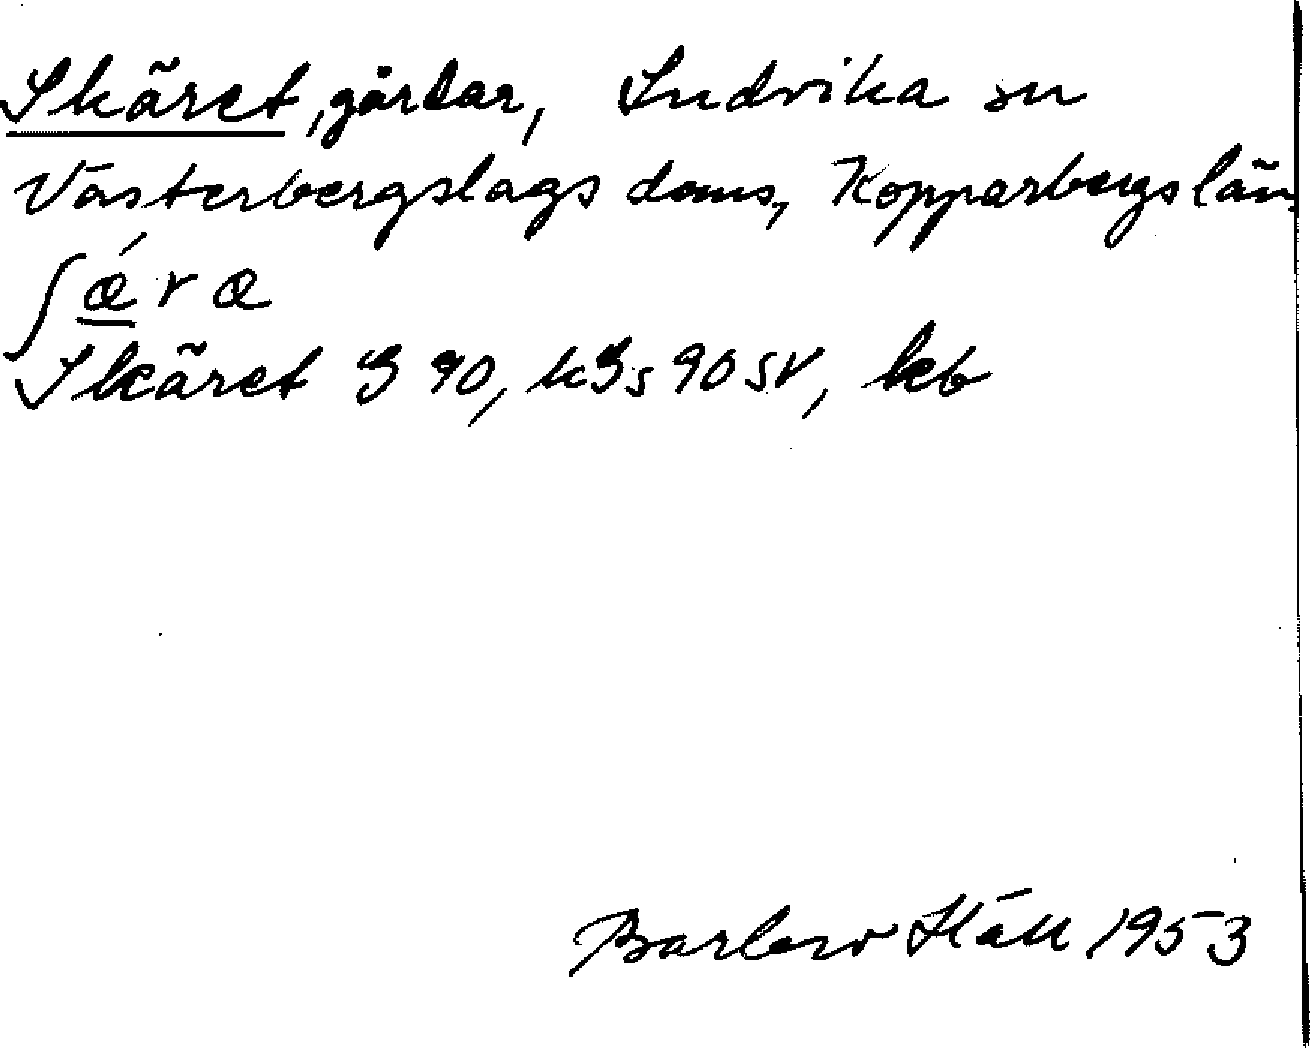 Skäret, gårdar, Ludvika sn
Västerbergslags doms, Kopparbergs län
ʃǽra
Skäret G 90, kGs 90 SV, kb
1953